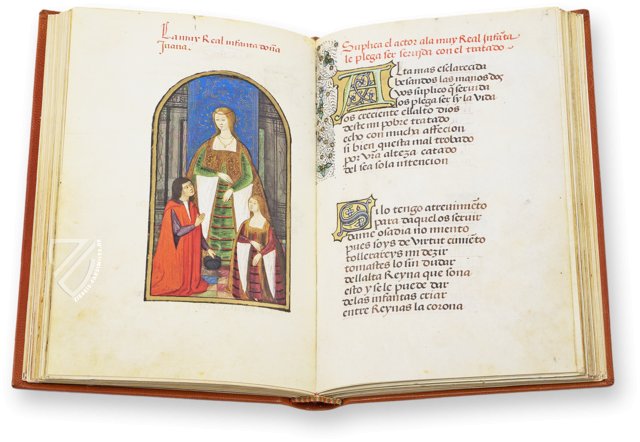 La muy Real infanta doña
Juana.
Suplica el actor ala muy Real Infāta
le plega ser seruida con el tratado
Alta mas esclarecida
besandos las manos dos
vos suplico q̄ seruida
los plega ser sy la vida
os creciente el alto dios
deste mi pobre tratado
echo con mucha affecion
si bien questa mal trobado
por vr̄a alteza catado
del sea sola intencion
Si lo tengo atreuimiēto
para daquelos seruir
dame osadia no miento
pues soys de virtut cimiēto
tollerareys mi dezir
tomastes lo sin dudar
dellalta Reyna que sona
esto y se le puede dar
delas infantas criar
entre Reynas la corona